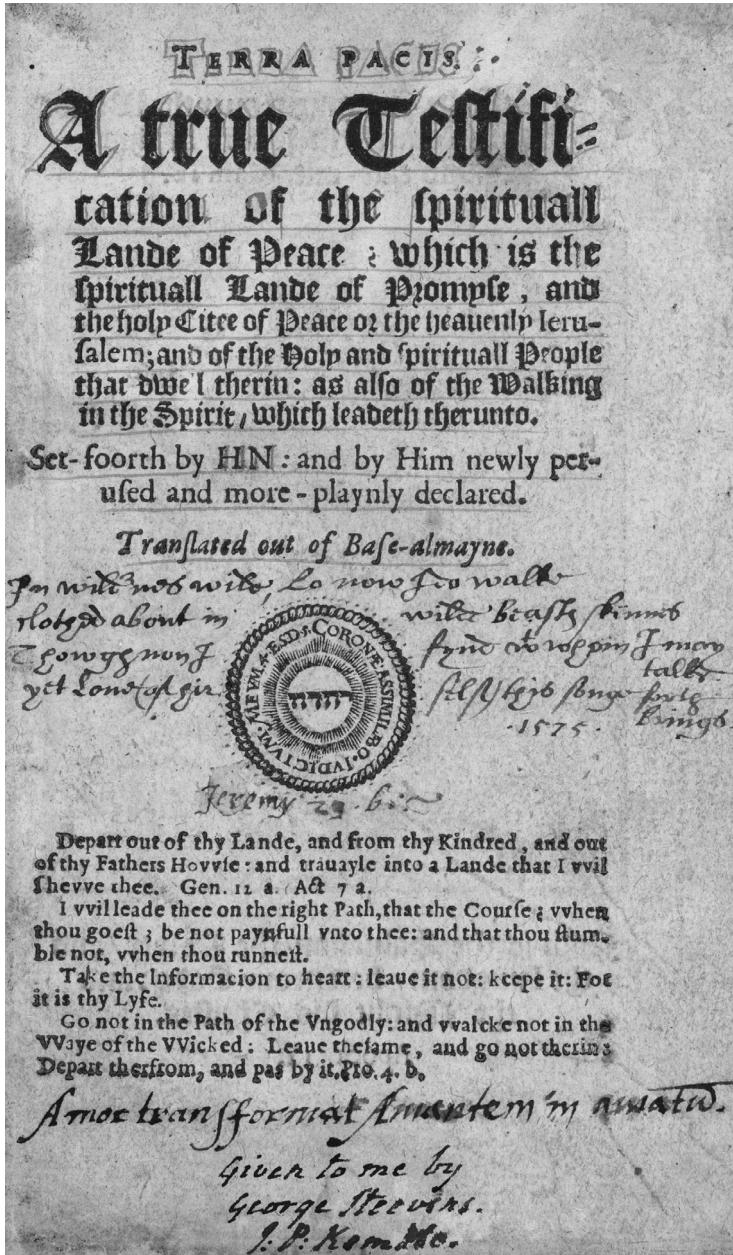 TERRA PACIS.
A true Teſtifi-
cation of the ſpirituall
Lande of Peace ; which is the
ſpirituall Lande of Promyſe, and
the holy Citee of Peace or the heauenly Ieru-
ſalem; and of the Holy and ſpirituall People
that dwel therin: as alſo of the Walking
in the Spirit, which leadeth therunto.
Set-foorth by HN: and by Him newly per-
uſed and more-playnly declared.
Tranſlated out of Baſe-almayne.
In wildnes wide, Lo now I do walke
clothed about in wilde beaſts ſkinnes
Thowgh non I fynd I may
talke
yet Loue this ſonge forth
brings
.1575.
CORONÆ ASSIMILABO. IVDICIVM MEVM. 4. ESD. 5.
יהוה
Jeremy 29. b:
Depart out of thy Lande, and from thy Kindred, and out
of thy Fathers Hovvſe: and trauayle into a Lande that I vvil
ſhevve thee. Gen. 12 a. Act 7 a.
I vvil leade thee on the right Path, that the Courſe ; vvhen
thou goeſt ; be not paynfull vnto thee: and that thou ſtum-
ble not, vvhen thou runneſt.
Take the Informacion to heart: leaue it not: keepe it: For
it is thy Lyfe.
Go not in the Path of the Vngodly: and vvalcke not in the
VVaye of the VVicked: Leaue theſame, and go not therin:
Depart therfrom, and pas by it. Pro. 4. b.
Amor tranſformat Amantem in amatū.
Given to me by
George Steevens.
J. P. Kemble.